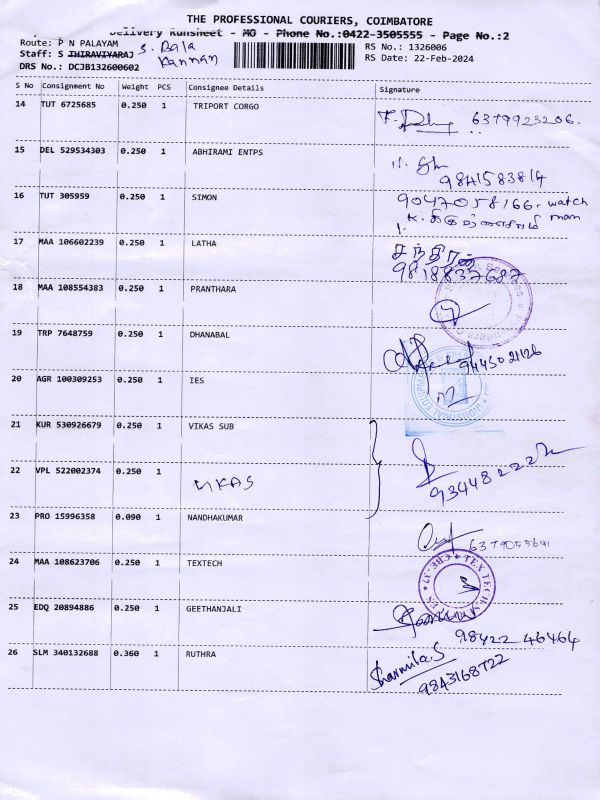 THE PROFESSIONAL COURIERS, COIMBATORE
Delivery Runsheet - MO - Phone No.:0422-3505555 - Page No.:2
Route: P N PALAYAM
Staff: S THIRAVIYARAJ S. Bala Kannan
DRS No.: DCJB132600602
RS No.: 1326006
RS Date: 22-Feb-2024
S No Consignment No Weight PCS Consignee Details Signature
14 TUT 6725685 0.250 1 TRIPORT CORGO 6379923206.
15 DEL 529534303 0.250 1 ABHIRAMI ENTPS
9841583814
16 TUT 305959 0.250 1 SIMON 9047058166. watch
man
17 MAA 106602239 0.250 1 LATHA
18 MAA 108554383 0.250 1 PRANTHARA
19 TRP 7648759 0.250 1 DHANABAL 9445021126
20 AGR 100309253 0.250 1 IES
21 KUR 530926679 0.250 1 VIKAS SUB
22 VPL 522002374 0.250 1 VIKAS
23 PRO 15996358 0.090 1 NANDHAKUMAR
24 MAA 108623706 0.250 1 TEXTECH
25 EDQ 20894886 0.250 1 GEETHANJALI
98422 46464
26 SLM 340132688 0.360 1 RUTHRA Sharmila.S
9843168722